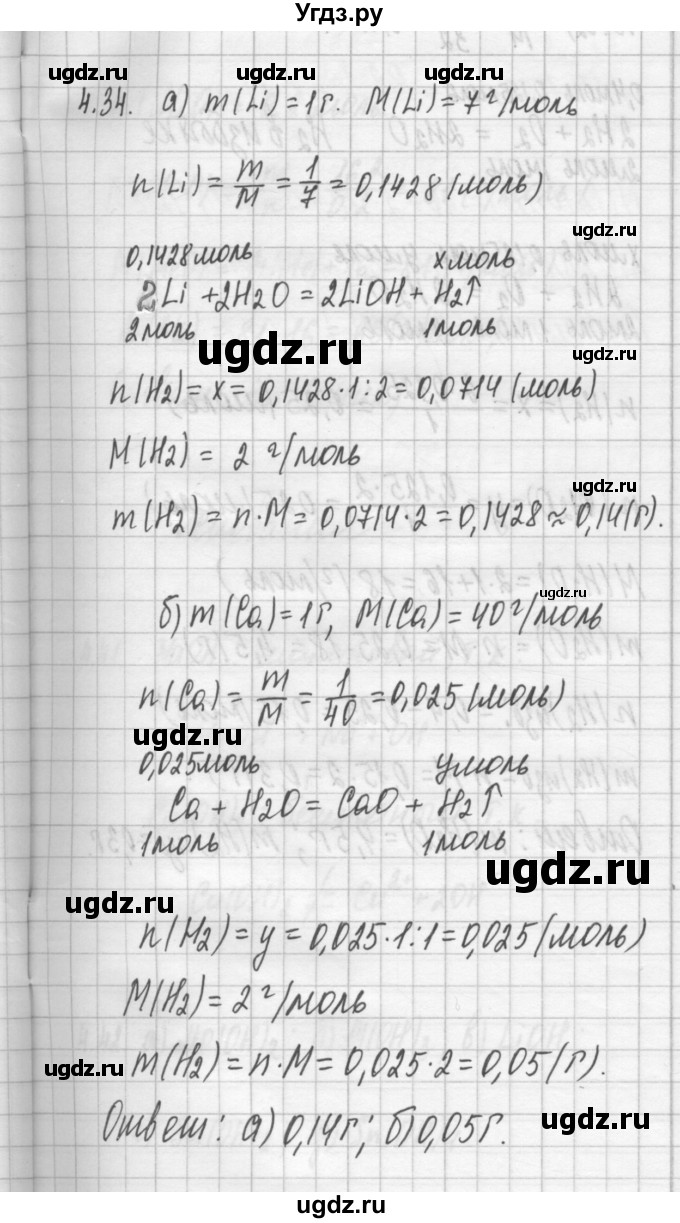 Угдз.ру
ugdz.ru ugdz.ru ugdz.ru
4.34. а) m(Li)=1г. M(Li)=7г/моль
n(Li)=m/M=1/7=0,1428(моль)
ugdz.ru
0,1428моль xмоль
2Li+2H2O=2LiOH+H2↑
2моль 1моль
ugdz.ru
ugdz.ru
n(H2)=x=0,1428·1:2=0,0714(моль)
M(H2)=2 г/моль
ugdz.ru
m(H2)=n·M=0,0714·2=0,1428≈0,14(г).
ugdz.ru
б) m(Ca)=1г, M(Ca)=40г/моль
n(Ca)=m/M=1/40=0,025(моль)
ugdz.ru
0,025моль yмоль
ugdz.ru
Ca+H2O=CaO+H2↑
1моль 1моль
ugdz.ru
ugdz.ru
n(H2)=y=0,025·1:1=0,025(моль)
M(H2)=2 г/моль
m(H2)=n·M=0,025·2=0,05(г).
ugdz.ru
Ответ: а)0,14г; б)0,05г.
ugdz.ru
ugdz.ru